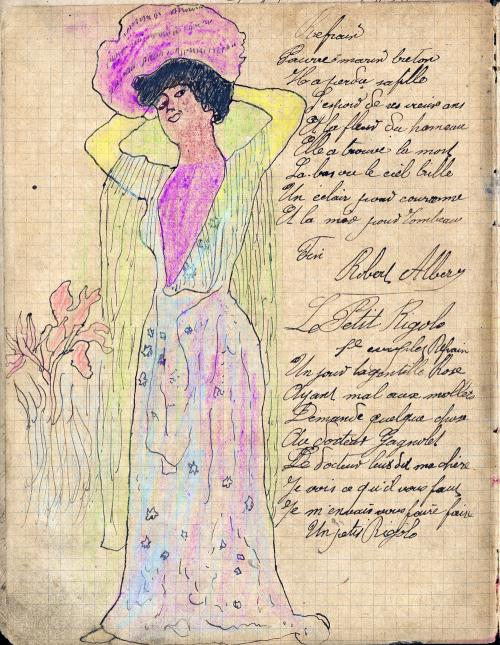 Refrain
Pauvre marin breton
Il a perdu sa fille
L'espoir de ses vieux ans
Et la fleur du hameau
Elle a trouvé la mort
La bas ou le ciel brille
Un eclair pour couronne
Et la mer pour Tombeau
Fin
Robert Albery
Le Petit Rigolo
1er couplet Refrain
Un jour la gentille Rose
Ayant mal aux mollets
Demande quelque chose
Au docteur Gagnolet
Le docteur lui dit ma chère
Je vois ce qu'il vous faut
Je m'en vais vous faire faire
Un petit Rigolo